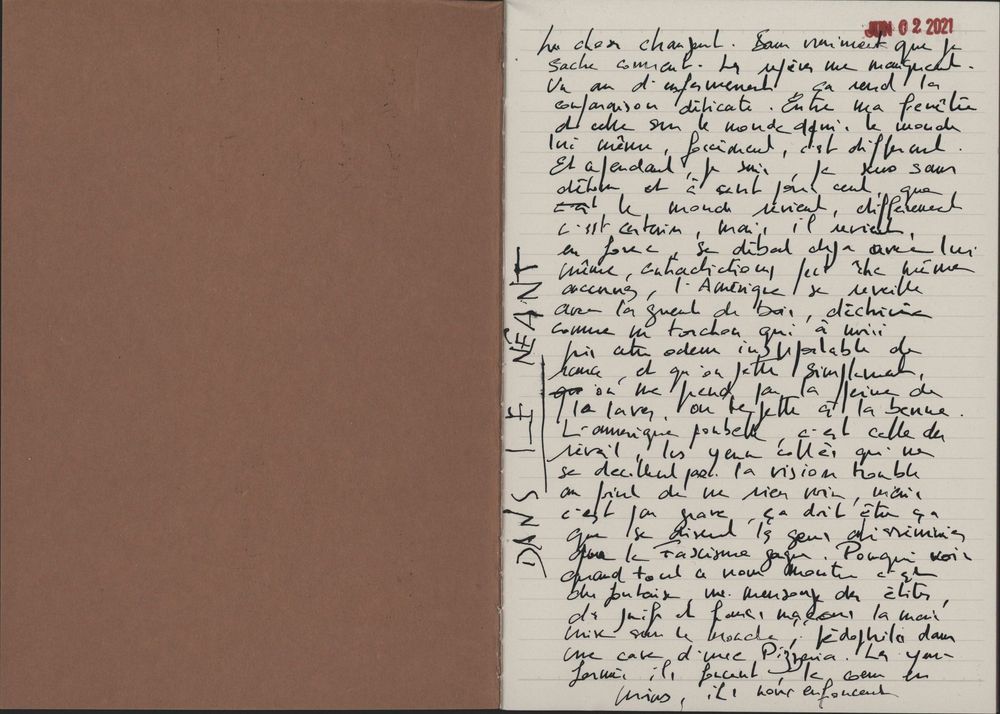 JUN 02 2021
Les choses changent. Sans vraiment que je
sache comment. Les repères me manquent.
Un an d'enfermement, ça rend la
comparaison délicate. Entre ma fenêtre
et celle sur le monde le monde
lui même, forcément, c'est différent.
Et cependant, je sais, je sens sans
détour et à cent pour cent, que
le monde revient, différent
c'est certain, mais il revient,
en force, se débat déjà avec lui
même, contradictions peut être même
anciennes, l'Amérique se réveille
avec la gueule de bois, déchirée
comme un torchon qui a moisi
puis cette odeur insupportable de
rance, et qu'on jette simplement,
on ne prend pas la peine de
le laver, on le jette à la benne.
L'amérique poubelle, c'est celle du
réveil, les yeux collés qui ne
se décillent pas. la vision trouble
au point de ne rien voir, mais
c'est pas grave, ça doit être ça
que se disent les gens
que le Fascisme gagne. Pourquoi voir
quand tout a nous montrer c'est
du foutaise, un mensonge des élites,
de juifs et francs maçons la main
mise sur le monde, pédophiles dans
une cave d'une Pizzeria. Les yeux
fermés ils foncent, le coeur en
moins, ils nous enfoncent
DANS LE NÉANT